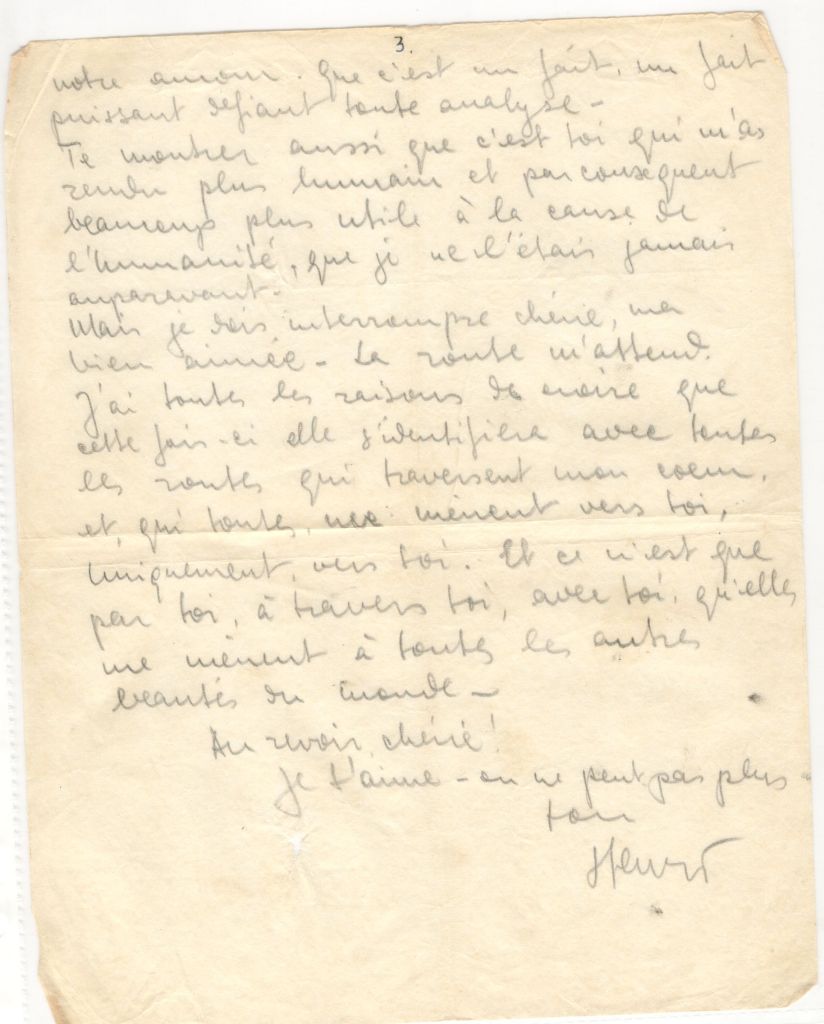 3.
notre amour. Que c'est un fait, un fait
puissant défiant toute analyse -
Te montrer aussi que c'est toi qui m'as
rendu plus humain et par consequent
beaucoup plus utile à la cause de
l'humanité, que je ne l'étais jamais
auparavant -
Mais je dois interrompre chérie, ma
bien aimée - La route m'attend.
J'ai toutes les raisons de croire que
cette fois-ci elle s'identifiera avec toutes
les routes qui traversent mon coeur,
et, qui toutes, me mènent vers toi,
Uniquement, vers toi. Et ce n'est que
par toi, à travers toi, avec toi, qu'elles
me mènent à toutes les autres
beautés du monde -
Au revoir, chérie!
Je t'aime - on ne peut pas plus -
ton